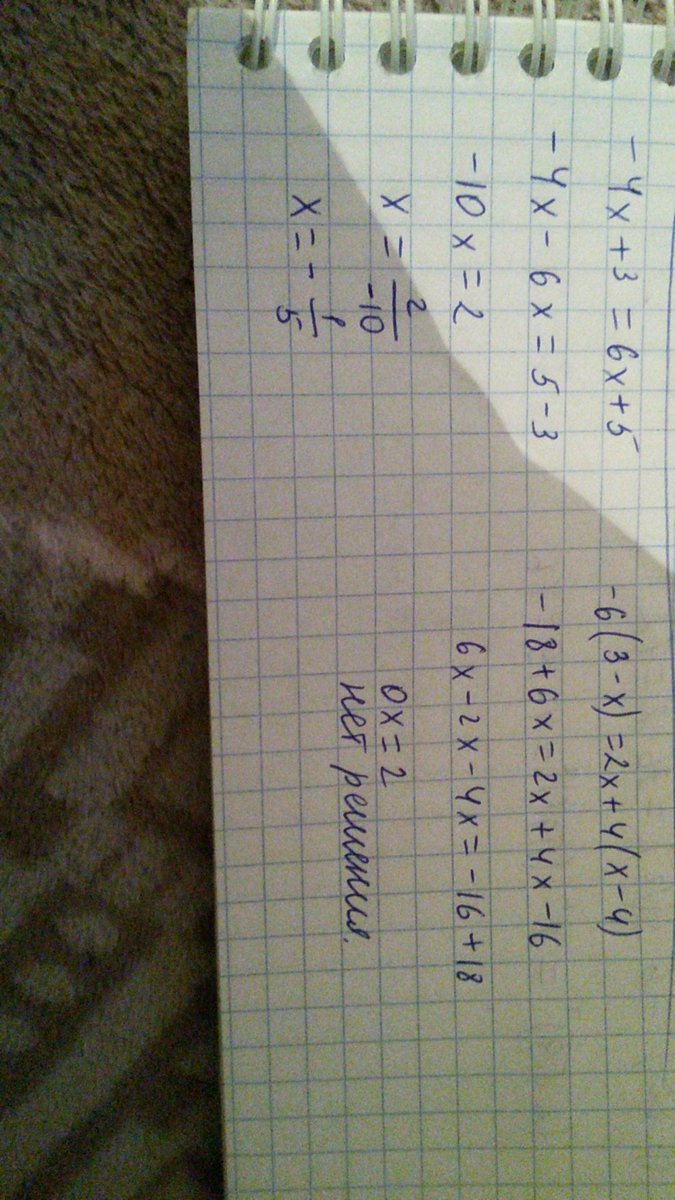 -4x+3=6x+5
-4x-6x=5-3
-10x=2
x=2/-10
x=-1/5
-6(3-x)=2x+4(x-4)
-18+6x=2x+4x-16
6x-2x-4x=-16+18
0x=2
нет решения.